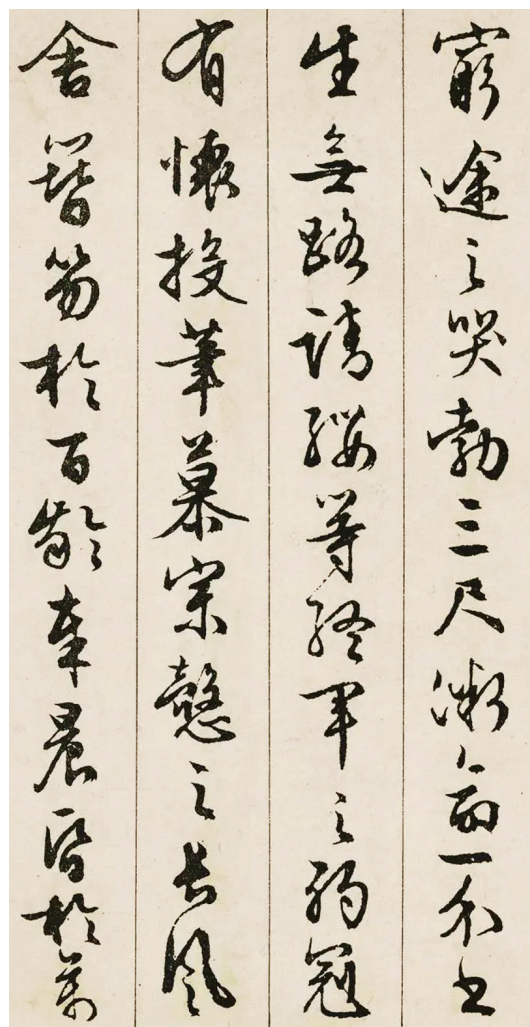 窮途之哭勃三尺微命一介書
生無路請纓等終軍之弱冠
有懷投筆慕宗慤之長風
舍簪笏於百齡奉晨昏於萬